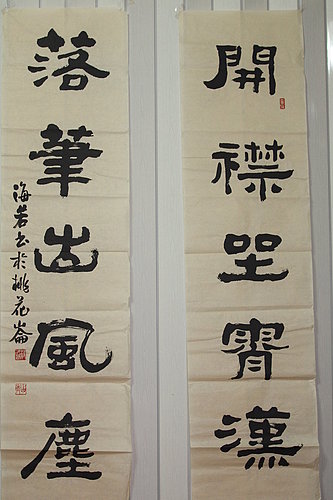 開襟坐霄漢
落筆出風塵
海若书於桃花崙